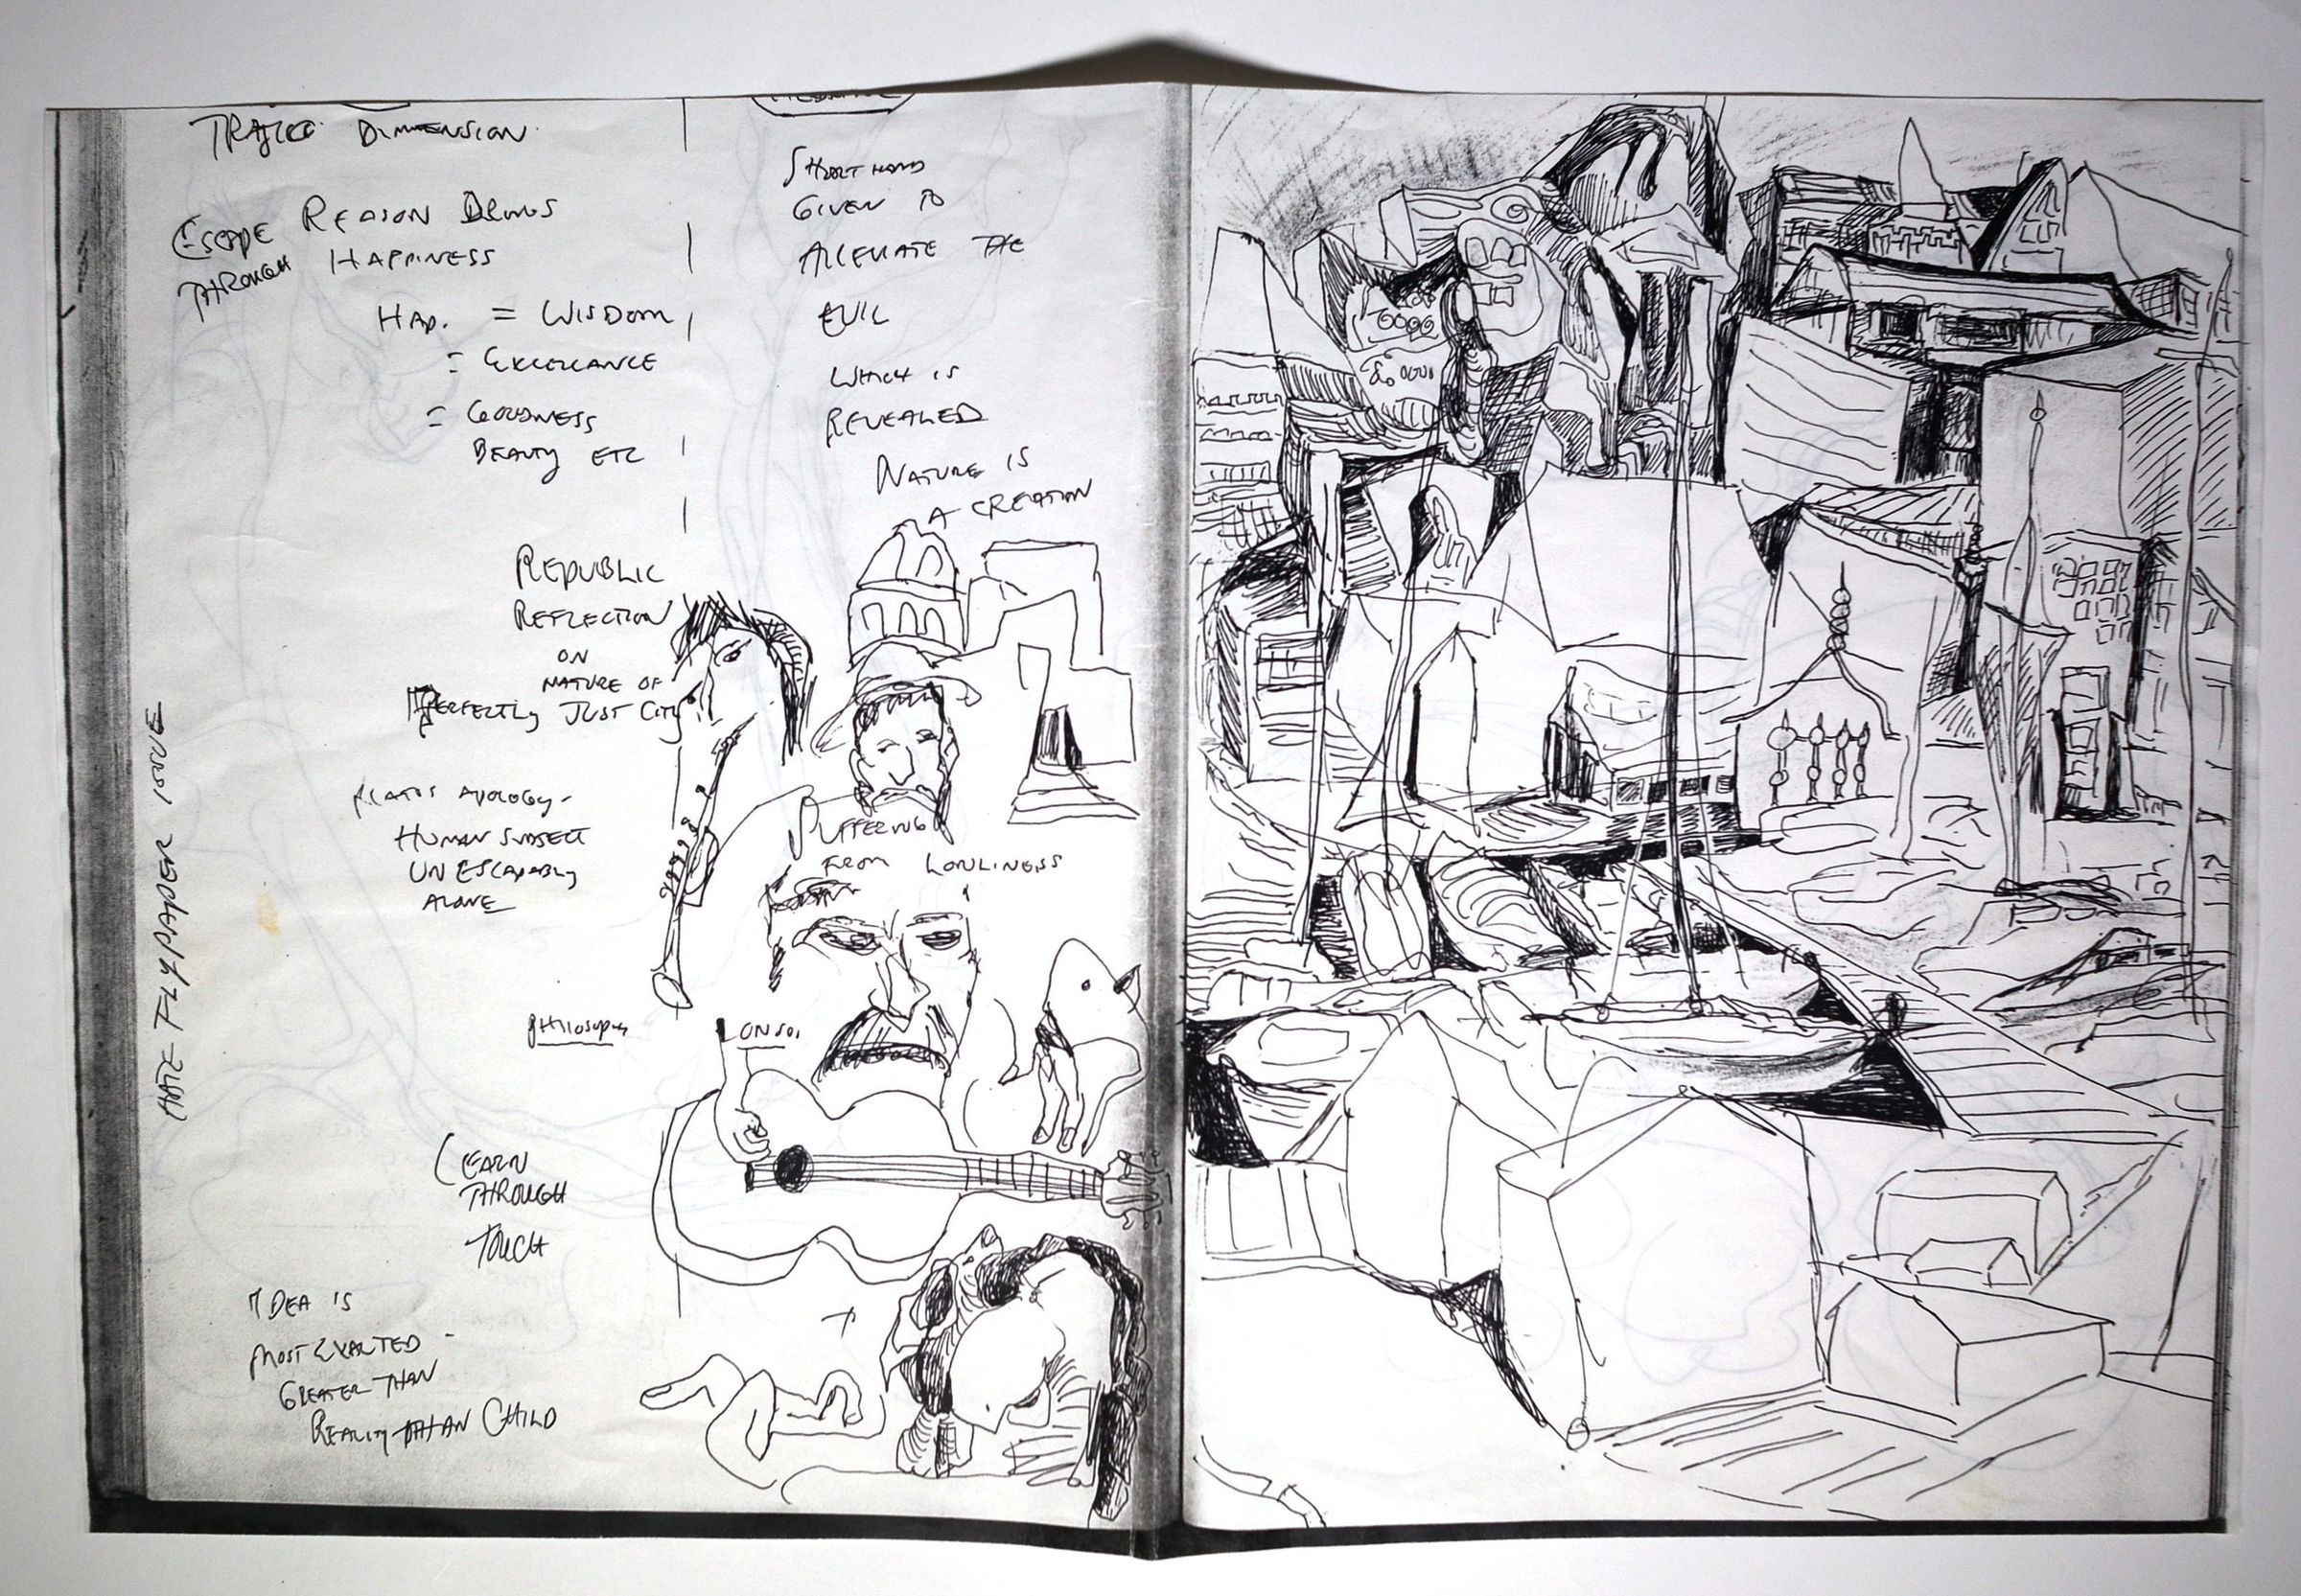 TRAGIC DIMENSION
ESCAPE
THROUGH
REASON BRINGS
HAPPINESS
HAP. = WISDOM
= EXCELLANCE
= GOODNESS
BEAUTY ETC
REPUBLIC
REFLECTION
ON
NATURE OF
PERFECTLY JUST CITY
PLATOS APOLOGY -
HUMAN SUBJECT
UNESCAPABLY
ALONE
PHILOSOPHY
LEARN
THROUGH
TOUCH
IDEA IS
MOST EXALTED -
GREATER THAN
REALITY THAN CHILD
HATE FLYPAPER LOVE
SHORT HAND
GIVEN TO
ALLEVIATE THE
EVIL
WHICH IS
REVEALED
NATURE IS
A CREATION
SUFFERING
FROM LONLINESS